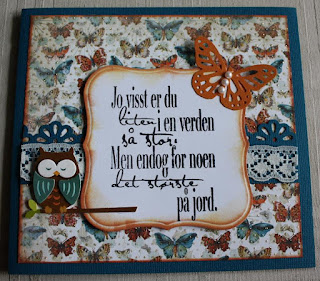 Jo visst er du
liten i en verden
så stor.
Men endog for noen
det største
på jord.